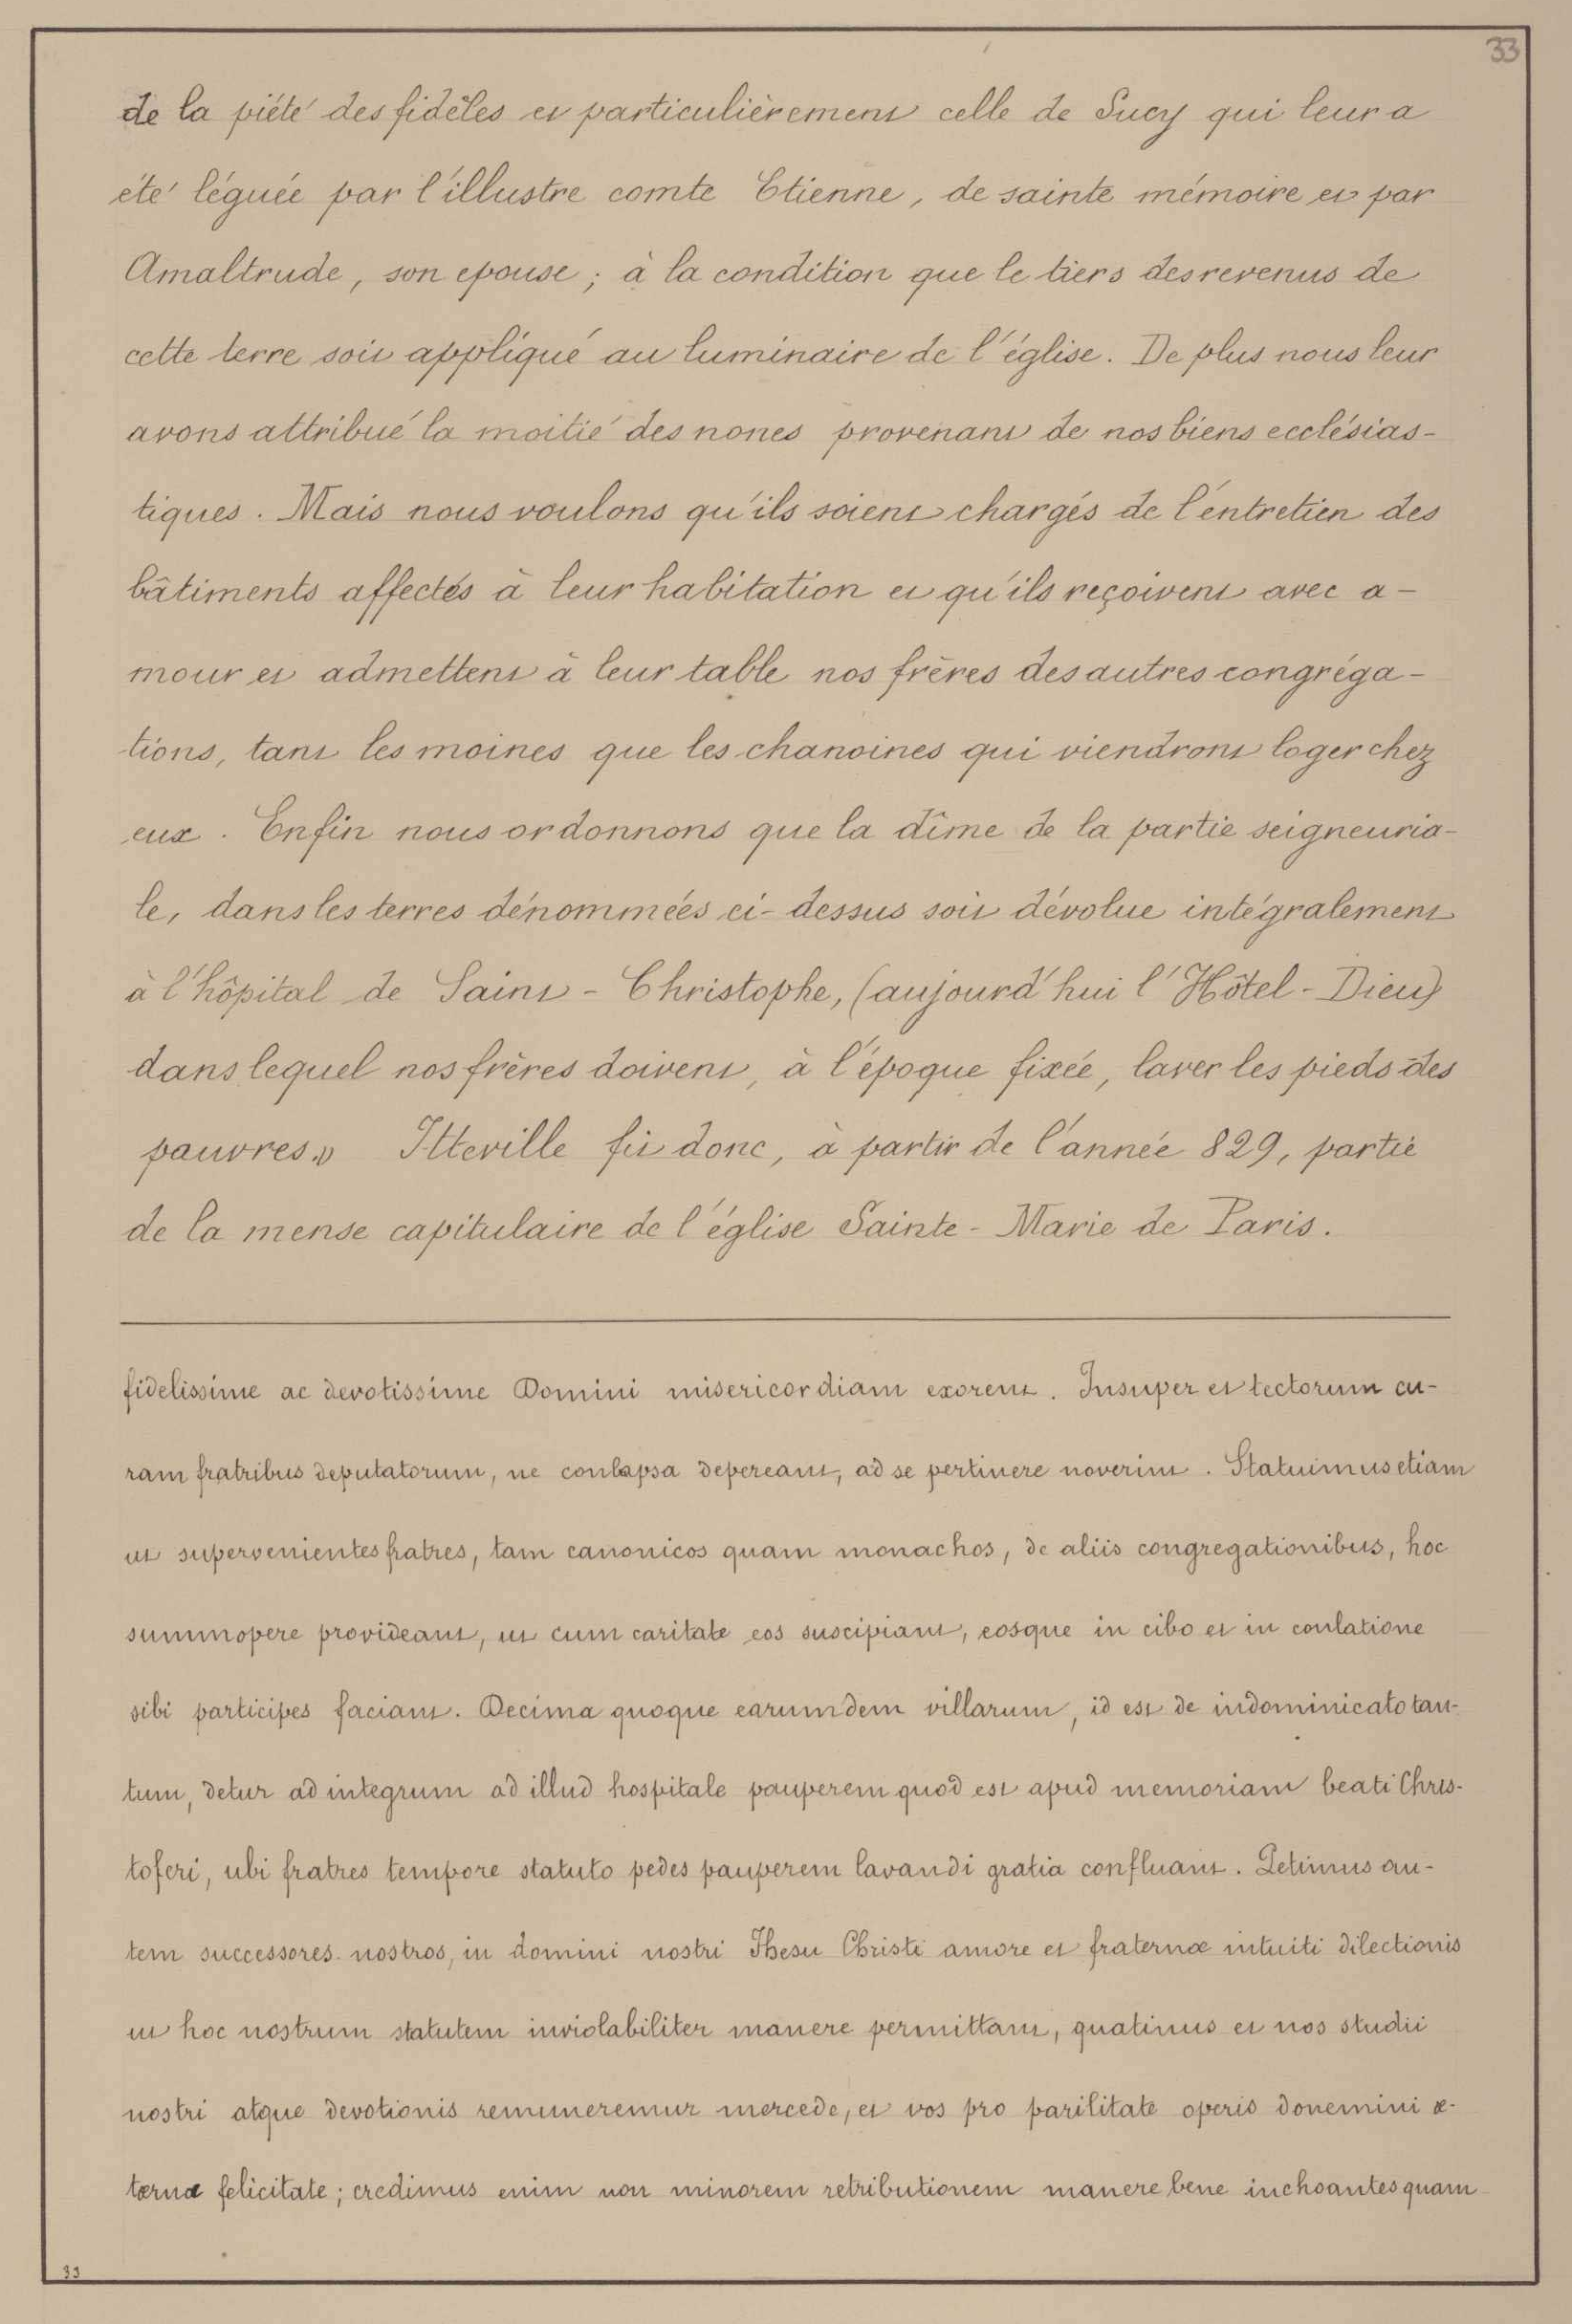 33
de la piété des fidèles et particulièrement celle de Sucy qui leur a
été léguée par l'illustre comte Etienne, de sainte mémoire et par
Amaltrude, son epouse ; à la condition que le tiers des revenus de
cette terre soit appliqué au luminaire de l'église. De plus nous leur
avons attribué la moitié des nones provenant de nos biens ecclésias-
tiques. Mais nous voulons qu'ils soient chargés de l'entretien des
bâtiments affectés à leur habitation et qu'ils reçoivent avec a-
mour et admettent à leur table nos frères des autres congréga-
tions, tant les moines que les chanoines qui viendront loger chez
eux. Enfin nous ordonnons que la dîme de la partie seigneuria-
le, dans les terres dénommées ci-dessus soit dévolue intégralement
à l'hôpital de Saint-Christophe, (aujourd'hui l'Hôtel-Dieu)
dans lequel nos frères doivent, à l'époque fixée, laver les pieds des
pauvres.» Itteville fit donc, à partir de l'année 829, partie
de la mense capitulaire de l'église Sainte-Marie de Paris.
fidelissime ac devotissime Domini misericordiam exorent. Insuper et tectorum cu-
ram fratribus deputatorum, ne conlapsa depereant, ad se pertinere noverint. Statuimus etiam
ut supervenientes fratres, tam canonicos quam monachos, de aliis congregationibus, hoc
summopere provideant, ut cum caritate eos suscipiant, eosque in cibo et in conlatione
sibi participes faciant. Decima quoque earumdem villarum, id est de indominicato tan-
tum, detur ad integrum ad illud hospitale pauperem quod est apud memoriam beati Chris-
toferi, ubi fratres tempore statuto pedes pauperem lavandi gratia confluant. Petimus au-
tem successores nostros, in domini nostri Jhesu Christi amore et fraternæ intuiti dilectionis
ut hoc nostrum statutem inviolabiliter manere permittant, quatinus et nos studii
nostri atque devotionis remuneremur mercede, et vos pro parilitate operis donemini æ-
ternæ felicitate ; credimus enim non minorem retributionem manere bene inchoantes quam
33